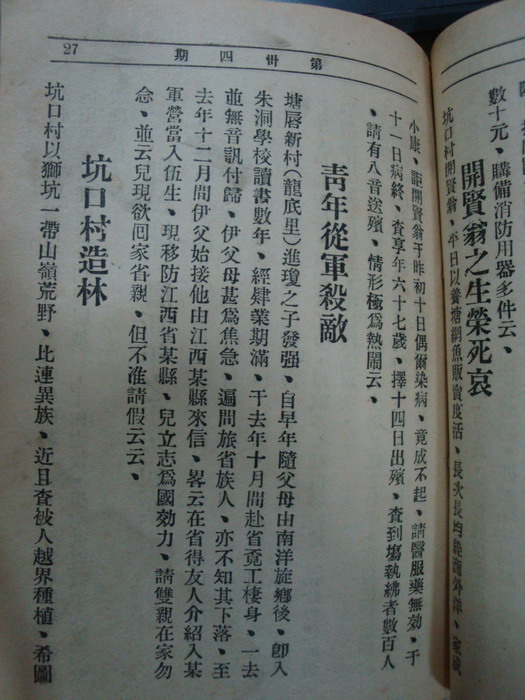 數十元、購備消防用器多件云、
開賢翁之生榮死哀
坑口村開賢翁、平日以養塘網魚販賣度活、長次
第卅四期
27
小康、詎開賢翁于昨初十日偶爾染病、竟成不起、請醫服藥無効、于
十一日病終、查享年六十七歲、擇十四日出殯、查到塲執紼者數百人
、請有八音送殯、情形極爲熱鬧云、
靑年從軍殺敵
塘唇新村(龍底里)進瓊之子發强、自早年隨父母由南洋旋鄉後、卽入
朱洞學校讀書數年、經肄業期滿、于去年十月間赴省覓工棲身、一去
並無音訊付歸、伊父母甚爲焦急、遍問旅省族人、亦不知其下落、至
去年十二月間伊父始接他由江西某縣來信、畧云在省得友人介紹入某
軍營當入伍生、現移防江西省某縣、兒立志爲國効力、請雙親在家勿
念、並云兒現欲回家省親、但不准請假云云、
坑口村造林
坑口村以獅坑一帶山嶺荒野、比連異族、近且查被人越界種植、希圖